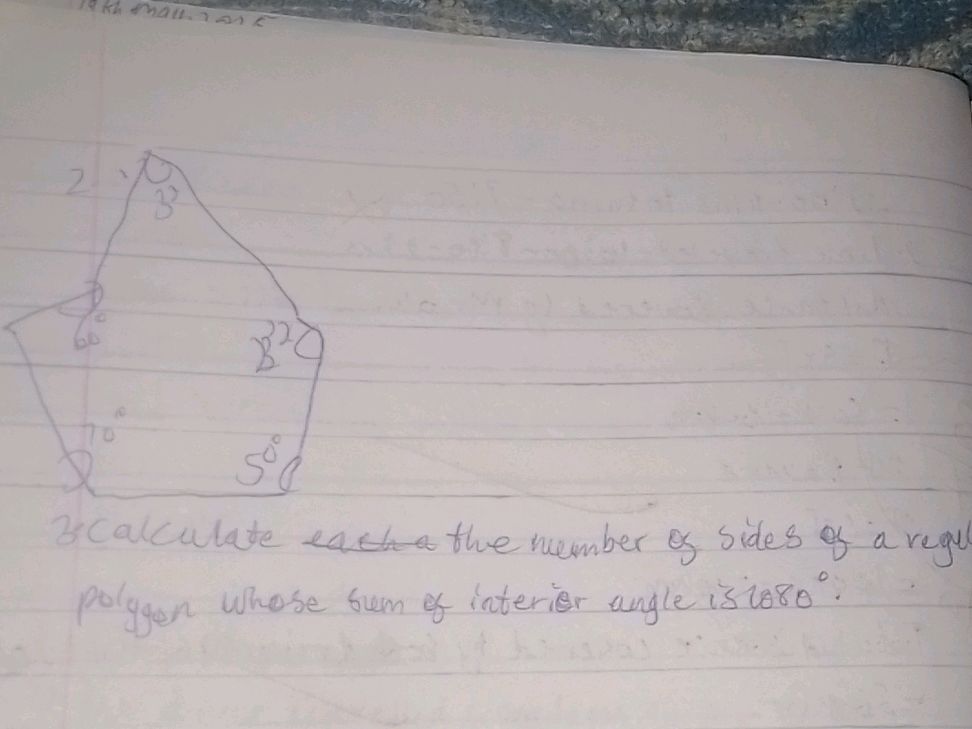 2
60°
70°
50°
3. Calculate ~~each a~~ the number of sides of a regu
polygon whose sum of interior angle is 1080°.